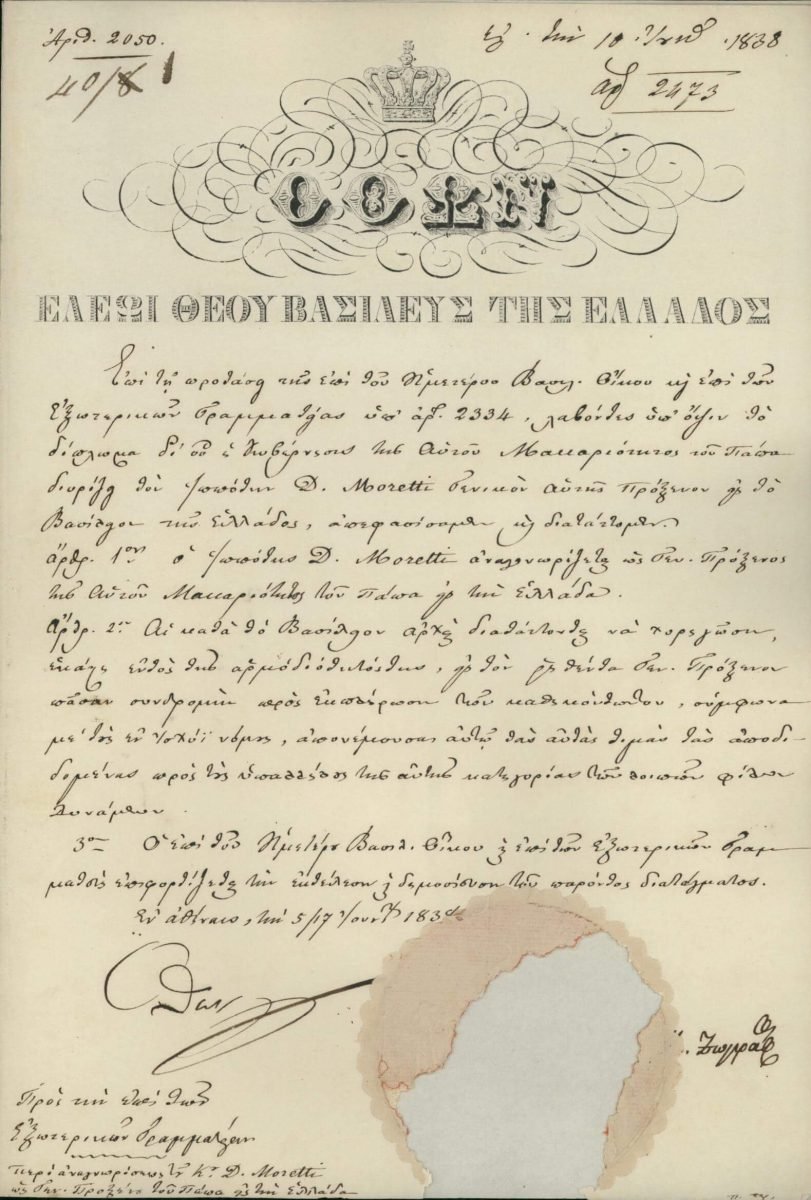 Ἀριθ. 2050.
40/8 1
τὴν 10 1838
ἀρ 2473
ΟΘΩΝ
ΕΛΕΩΙ ΘΕΟΥ ΒΑΣΙΛΕΥΣ ΤΗΣ ΕΛΛΑΔΟΣ
Ἐπὶ τῇ προτάσει τῆς ἐπὶ τοῦ Ἡμετέρου Βασιλ. Οἴκου κ ἐπὶ τῶν
Ἐξωτερικῶν Γραμματείας ὑπ' ἀρ. 2334, λαβόντες ὑπ' ὄψιν τὸ
δίπλωμα δι' οὗ ἡ Κυβέρνησις τῆς Αὐτοῦ Μακαριότητος τοῦ Πάπα
διορίζει τὸν ἱππότην D. Moretti Γενικὸν αὐτῆς Πρόξενον εἰς τὸ
Βασίλειον τῆς Ἑλλάδος, ἀπεφασίσαμεν κ διατάττομεν.
ἄρθρ. 1ον ὁ ἱππότης D. Moretti ἀναγνωρίζεται ὡς Γεν. Πρόξενος
τῆς Αὐτοῦ Μακαριότητος τοῦ Πάπα εἰς τὴν Ἑλλάδα.
Ἄρθρ. 2ον Αἱ κατὰ τὸ Βασίλειον ἀρχαὶ διατάττονται νὰ χορηγῶσιν,
ἑκάστη ἐντὸς τῆς ἁρμοδιότητός της, εἰς τὸν Γεν. Πρόξενον
πᾶσαν συνδρομὴν πρὸς ἐκπλήρωσιν τῶν καθηκόντων του, σύμφωνα
μὲ τοὺς ἐν ἰσχύϊ νόμους, ἀπονέμουσαι αὐτῷ τὰς αὐτὰς τιμὰς τὰς ἀποδι-
δομένας πρὸς τοὺς ὑπαλλήλους τῆς αὐτῆς κατηγορίας τῶν λοιπῶν φίλων
Δυνάμεων.
3ον Ὁ ἐπὶ τοῦ Ἡμετέρου Βασιλ. Οἴκου κ ἐπὶ τῶν Ἐξωτερικῶν Γραμ-
ματεὺς ἐπιφορτίζεται τὴν ἐκτέλεσιν κ δημοσίευσιν τοῦ παρόντος διατάγματος.
Ἐν Ἀθήναις, τὴν 5/17 Ἰουν 1838
Ὄθων
Ζωγρά
Πρὸς τὴν ἐπὶ τῶν
Ἐξωτερικῶν Γραμματείαν
περὶ ἀναγνωρίσεως τοῦ Κου D. Moretti
ὡς Γεν. Προξένου τοῦ Πάπα εἰς τὴν Ἑλλάδα